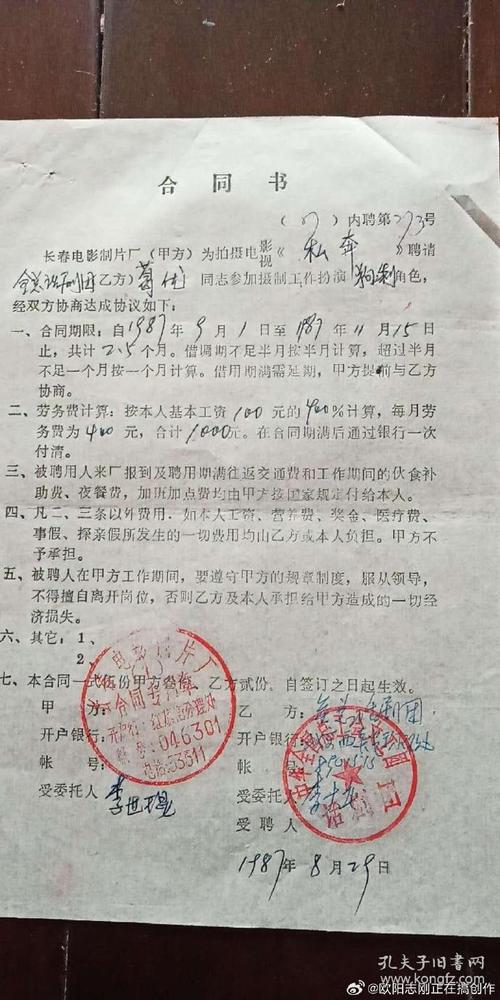 合同书
(87)内聘第273号
长春电影制片厂(甲方)为拍摄电影视《私奔》聘请
全总话剧团乙方)葛优同志参加摄制工作扮演 角色,
经双方协商达成协议如下:
一、合同期限:自1987年9月1日至1987年11月15日
止,共计2.5个月。借调期不足半月按半月计算,超过半月
不足一个月按一个月计算。借用期满需延期,甲方提前与乙方
协商。
二、劳务费计算:按本人基本工资100元的400%计算,每月劳
务费为400元,合计1000元。在合同期满后通过银行一次
付清。
三、被聘用人来厂报到及聘用期满往返交通费和工作期间的伙食补
助费、夜餐费,加班加点费均由甲方按国家规定付给本人。
四、凡二、三条以外费用,如本人工资、营养费、奖金、医疗费、
事假、探亲假所发生的一切费用均由乙方或本人负担。甲方不
予承担。
五、被聘人在甲方工作期间,要遵守甲方的规章制度,服从领导,
不得擅自离开岗位,否则乙方及本人承担给甲方造成的一切经
济损失。
六、其它:1、
2、
七、本合同一式 份甲方 乙方贰份。自签订之日起生效。
甲方:
开户银行:
帐号:
受委托人
乙方:
开户银行:
帐号:
受委托人
受聘人
电影制片厂
合同专用章
046301
电话:53311
话剧团
1987年8月29日
孔夫子旧书网
@欧阳志刚正在搞创作